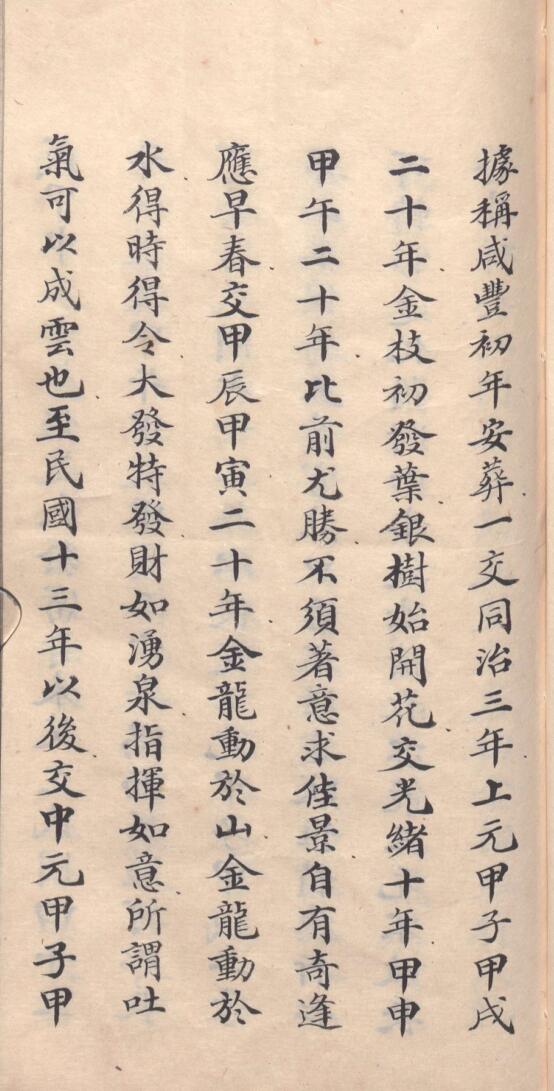 據稱咸豐初年安葬一交同治三年上元甲子甲戌
二十年金枝初發葉銀樹始開花交光緒十年甲申
甲午二十年比前尤勝不須著意求佳景自有奇逢
應早春交甲辰甲寅二十年金龍動於山金龍動於
水得時得令大發特發財如湧泉指揮如意所謂吐
氣可以成雲也至民國十三年以後交中元甲子甲